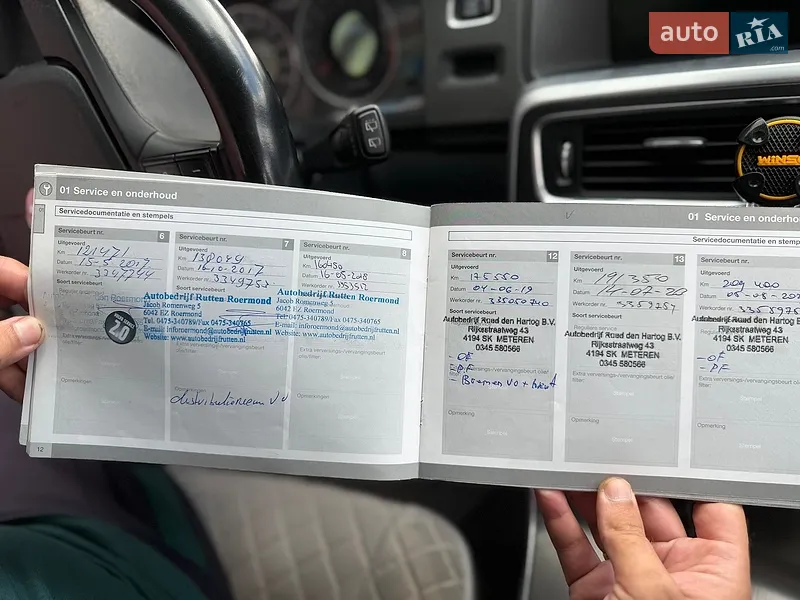 auto RIA .com
WINSO
01 Service en onderhoud
Servicedocumentatie en stempels
Servicebeurt nr. 6
Uitgevoerd
Km 121471
Datum 15-5-2017
Werkorder nr.
Soort servicebeurt
2.0
Servicebeurt nr. 7
Uitgevoerd
Km 138049
Datum 16-10-2017
Werkorder nr. 3349753
Soort servicebeurt
Autobedrijf Rutten Roermond
Jacob Romenweg 5
6042 EZ Roermond
Tel. 0475-340789/Fax 0475-340765
E-mail: inforoermond@autobedrijfrutten.nl
Website: www.autobedrijfrutten.nl
Opmerkingen
distributieriem VV
Servicebeurt nr. 8
Uitgevoerd
Km 160450
Datum 16-05-2018
Werkorder nr. 3353512
Soort servicebeurt
Autobedrijf Rutten Roermond
Jacob Romenweg 5
6042 EZ Roermond
Tel. 0475-340789/Fax 0475-340765
E-mail: inforoermond@autobedrijfrutten.nl
Website: www.autobedrijfrutten.nl
Opmerkingen
12
01 Service en onderho
Servicedocumentatie en stemp
Servicebeurt nr. 12
Uitgevoerd
Km 175550
Datum 04-06-19
Werkorder nr. 335050740
Soort servicebeurt
Autobedrijf Ruud den Hartog B.V.
Rijksstraatweg 43
4194 SK METEREN
0345 580566
- OF
- PF
Opmerking
Servicebeurt nr. 13
Uitgevoerd
Km 191350
Datum 14-02-20
Werkorder nr. 3359757
Soort servicebeurt
Autobedrijf Ruud den Hartog B.V.
Rijksstraatweg 43
4194 SK METEREN
0345 580566
Extra verversings-/vervangingsbeurt olie/
Opmerking
Servicebeurt nr.
Uitgevoerd
Km 209 400
Datum
Werkorder nr.
Soort servicebeurt
Autobedrijf Ruud den Hartog B.V.
Rijksstraatweg 43
4194 SK METEREN
0345 580566
- OF
- PF
Extra verversings-/vervangingsbeurt
Opmerking